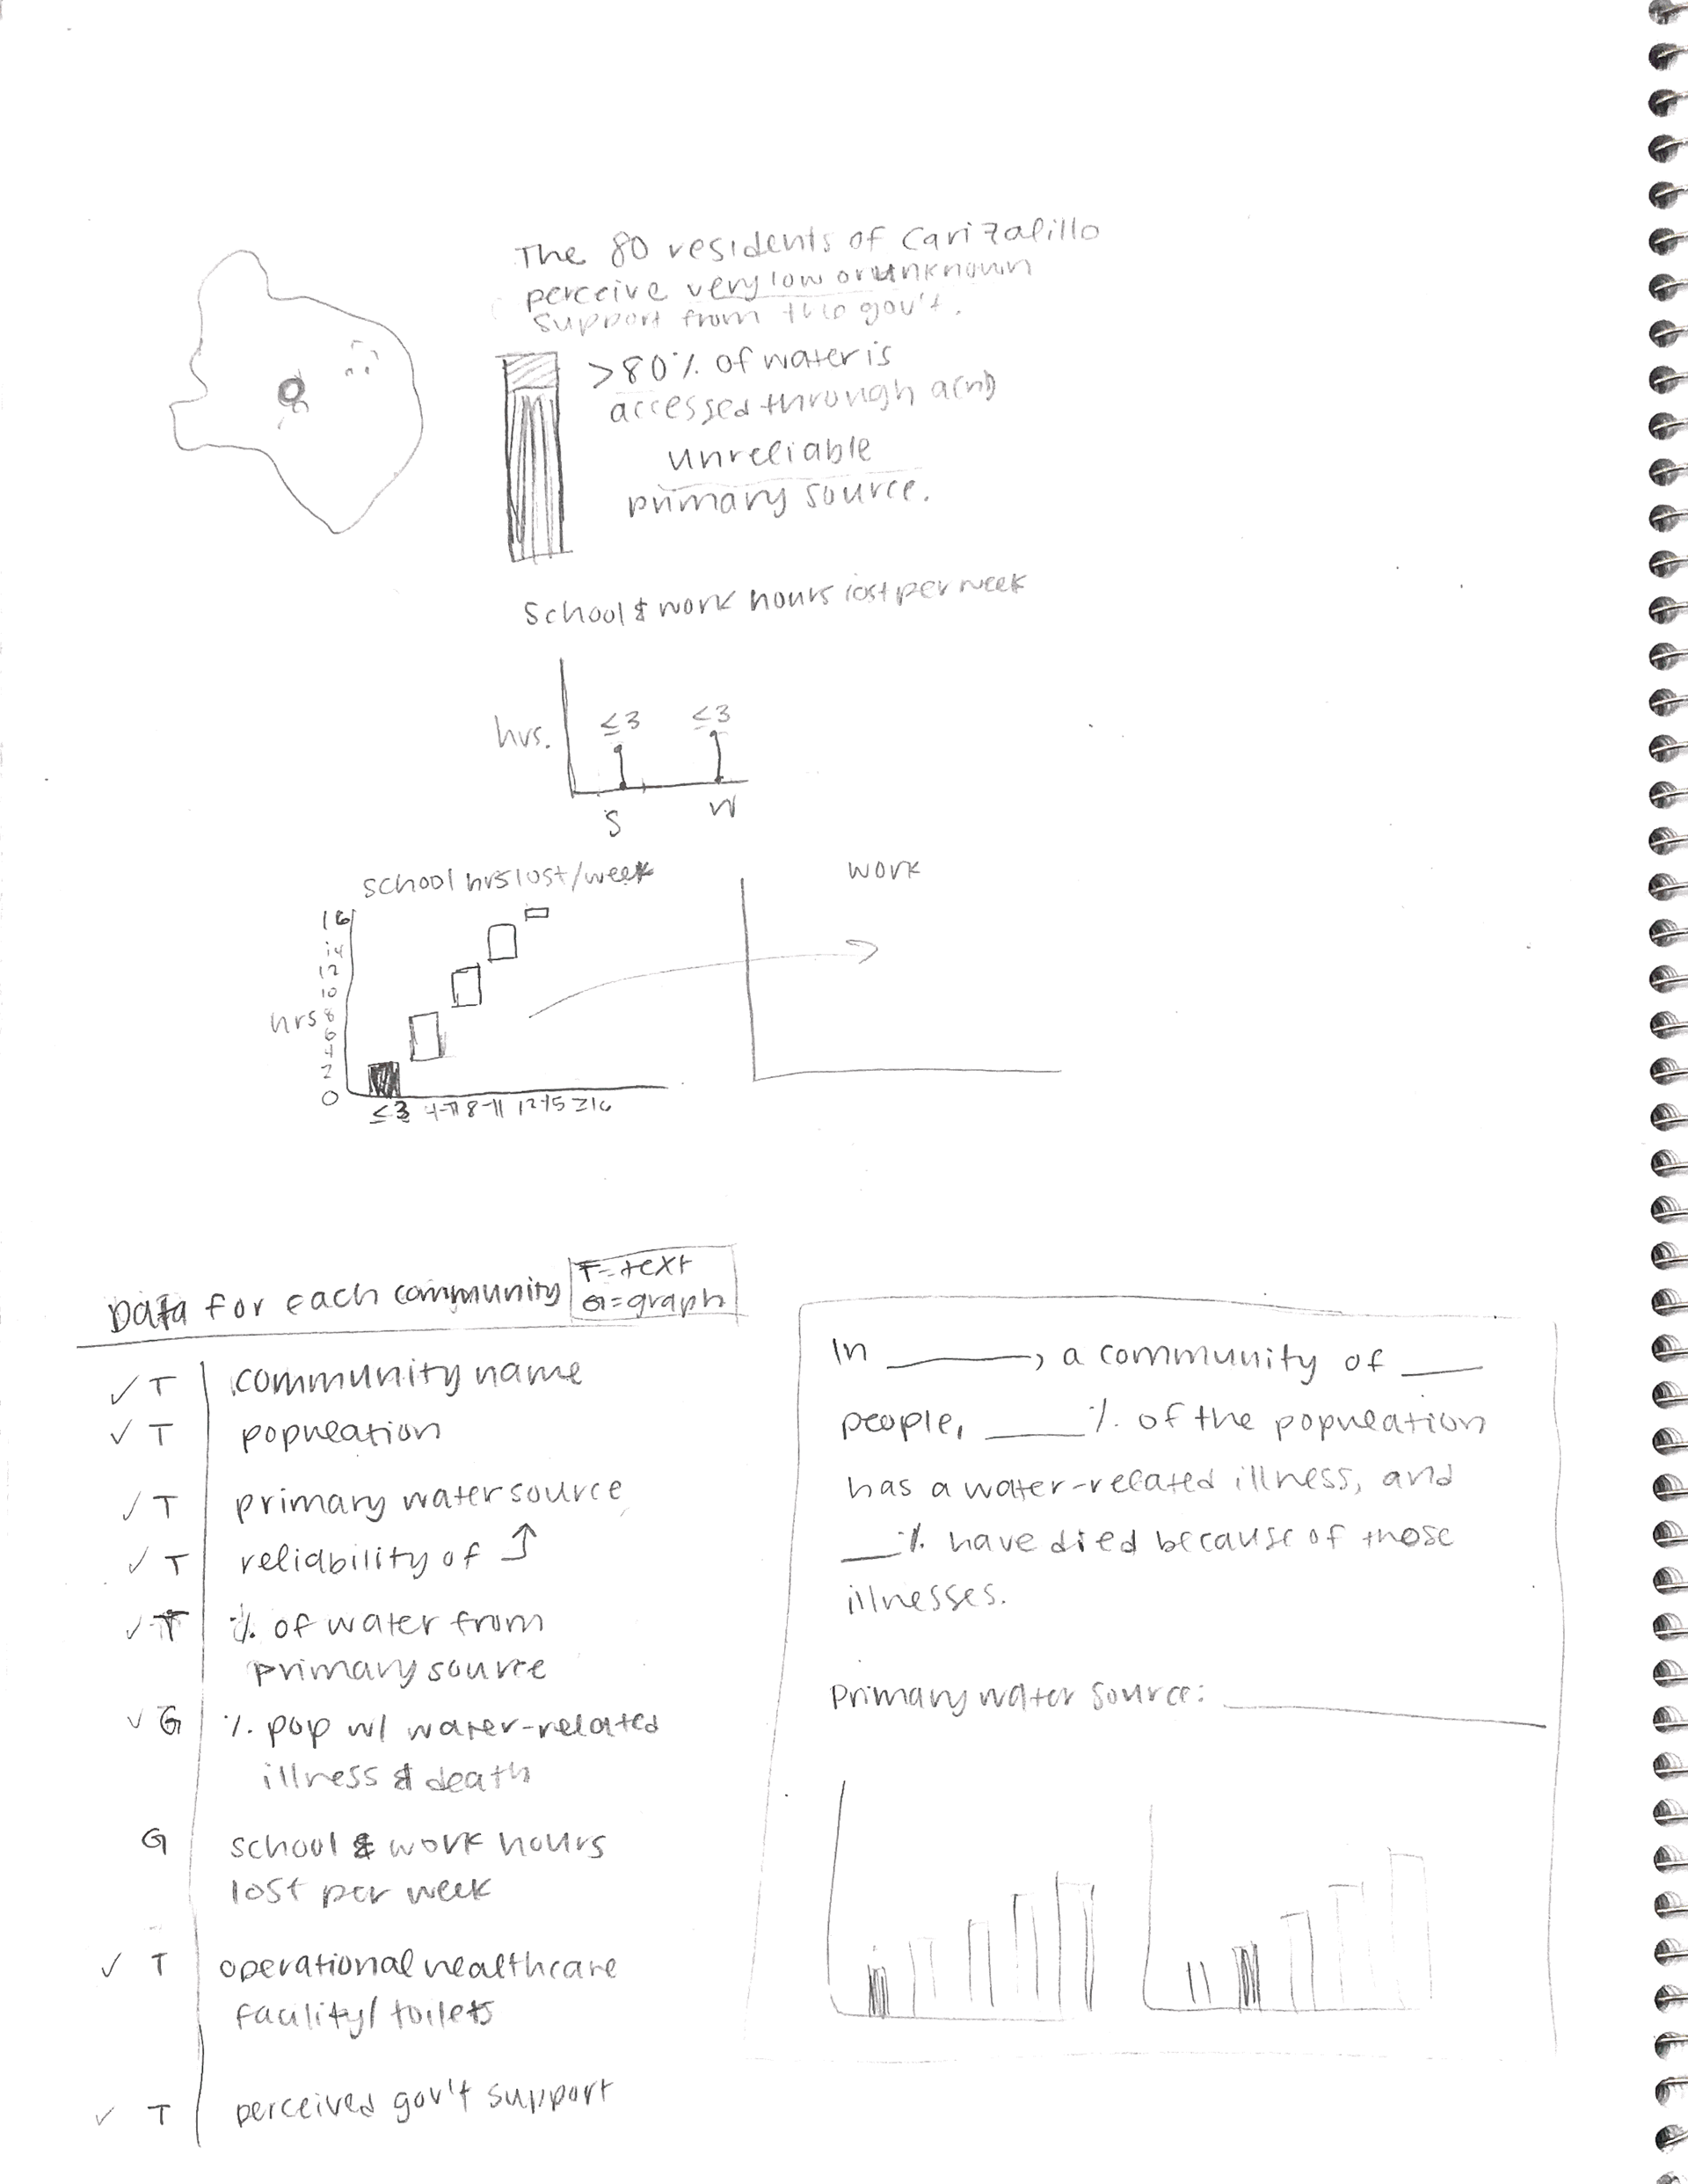 The 80 residents of Carizalillo
perceive very low or unknown
support from the gov't.
>80% of water is
accessed through a(n)
unreliable
primary source.
School & work hours lost per week
hrs.
≤3 ≤3
S W
school hrs lost/week
work
16
14
12
10
hrs 8
6
4
2
0
≤3 4-7 8-11 12-15 ≥16
Data for each community
T=text
G=graph
✓ T community name
✓ T population
✓ T primary water source
✓ T reliability of ↑
✓ T % of water from
primary source
✓ G % pop w/ water-related
illness & death
G school & work hours
lost per week
✓ T operational healthcare
facility/toilets
✓ T perceived gov't support
In ______, a community of ___
people, ____% of the population
has a water-related illness, and
___% have died because of those
illnesses.
Primary water source: ____________